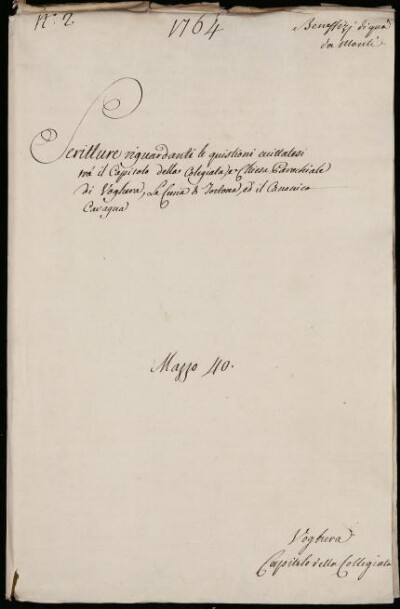 N.° 2.
1764
Beneffizj di quà
da Monti
Scritture riguardanti le quistioni suscitatesi
trà il Capitolo della Colegiata, e Chiesa Parochiale
di Voghera, La Curia di Tortona, ed il Canonico
Cavagna
Mazzo 40.
Voghera
Capitolo della Collegiata